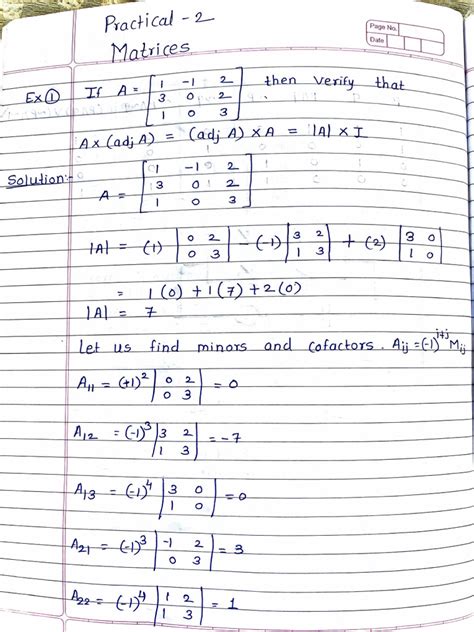 Practical - 2
Page No.
Date
Matrices
Ex ① If A = [1 -1 2; 3 0 2; 1 0 3] then verify that
A × (adj A) = (adj A) × A = |A| × I
Solution:-
A = [1 -1 2; 3 0 2; 1 0 3]
|A| = (1) |0 2; 0 3| - (-1) |3 2; 1 3| + (2) |3 0; 1 0|
= 1(0) + 1(7) + 2(0)
|A| = 7
Let us find minors and cofactors. Aij = (-1)^i+j Mij
A11 = (+1)² |0 2; 0 3| = 0
A12 = (-1)³ |3 2; 1 3| = -7
A13 = (-1)⁴ |3 0; 1 0| = 0
A21 = (-1)³ |-1 2; 0 3| = 3
A22 = (-1)⁴ |1 2; 1 3| = 1